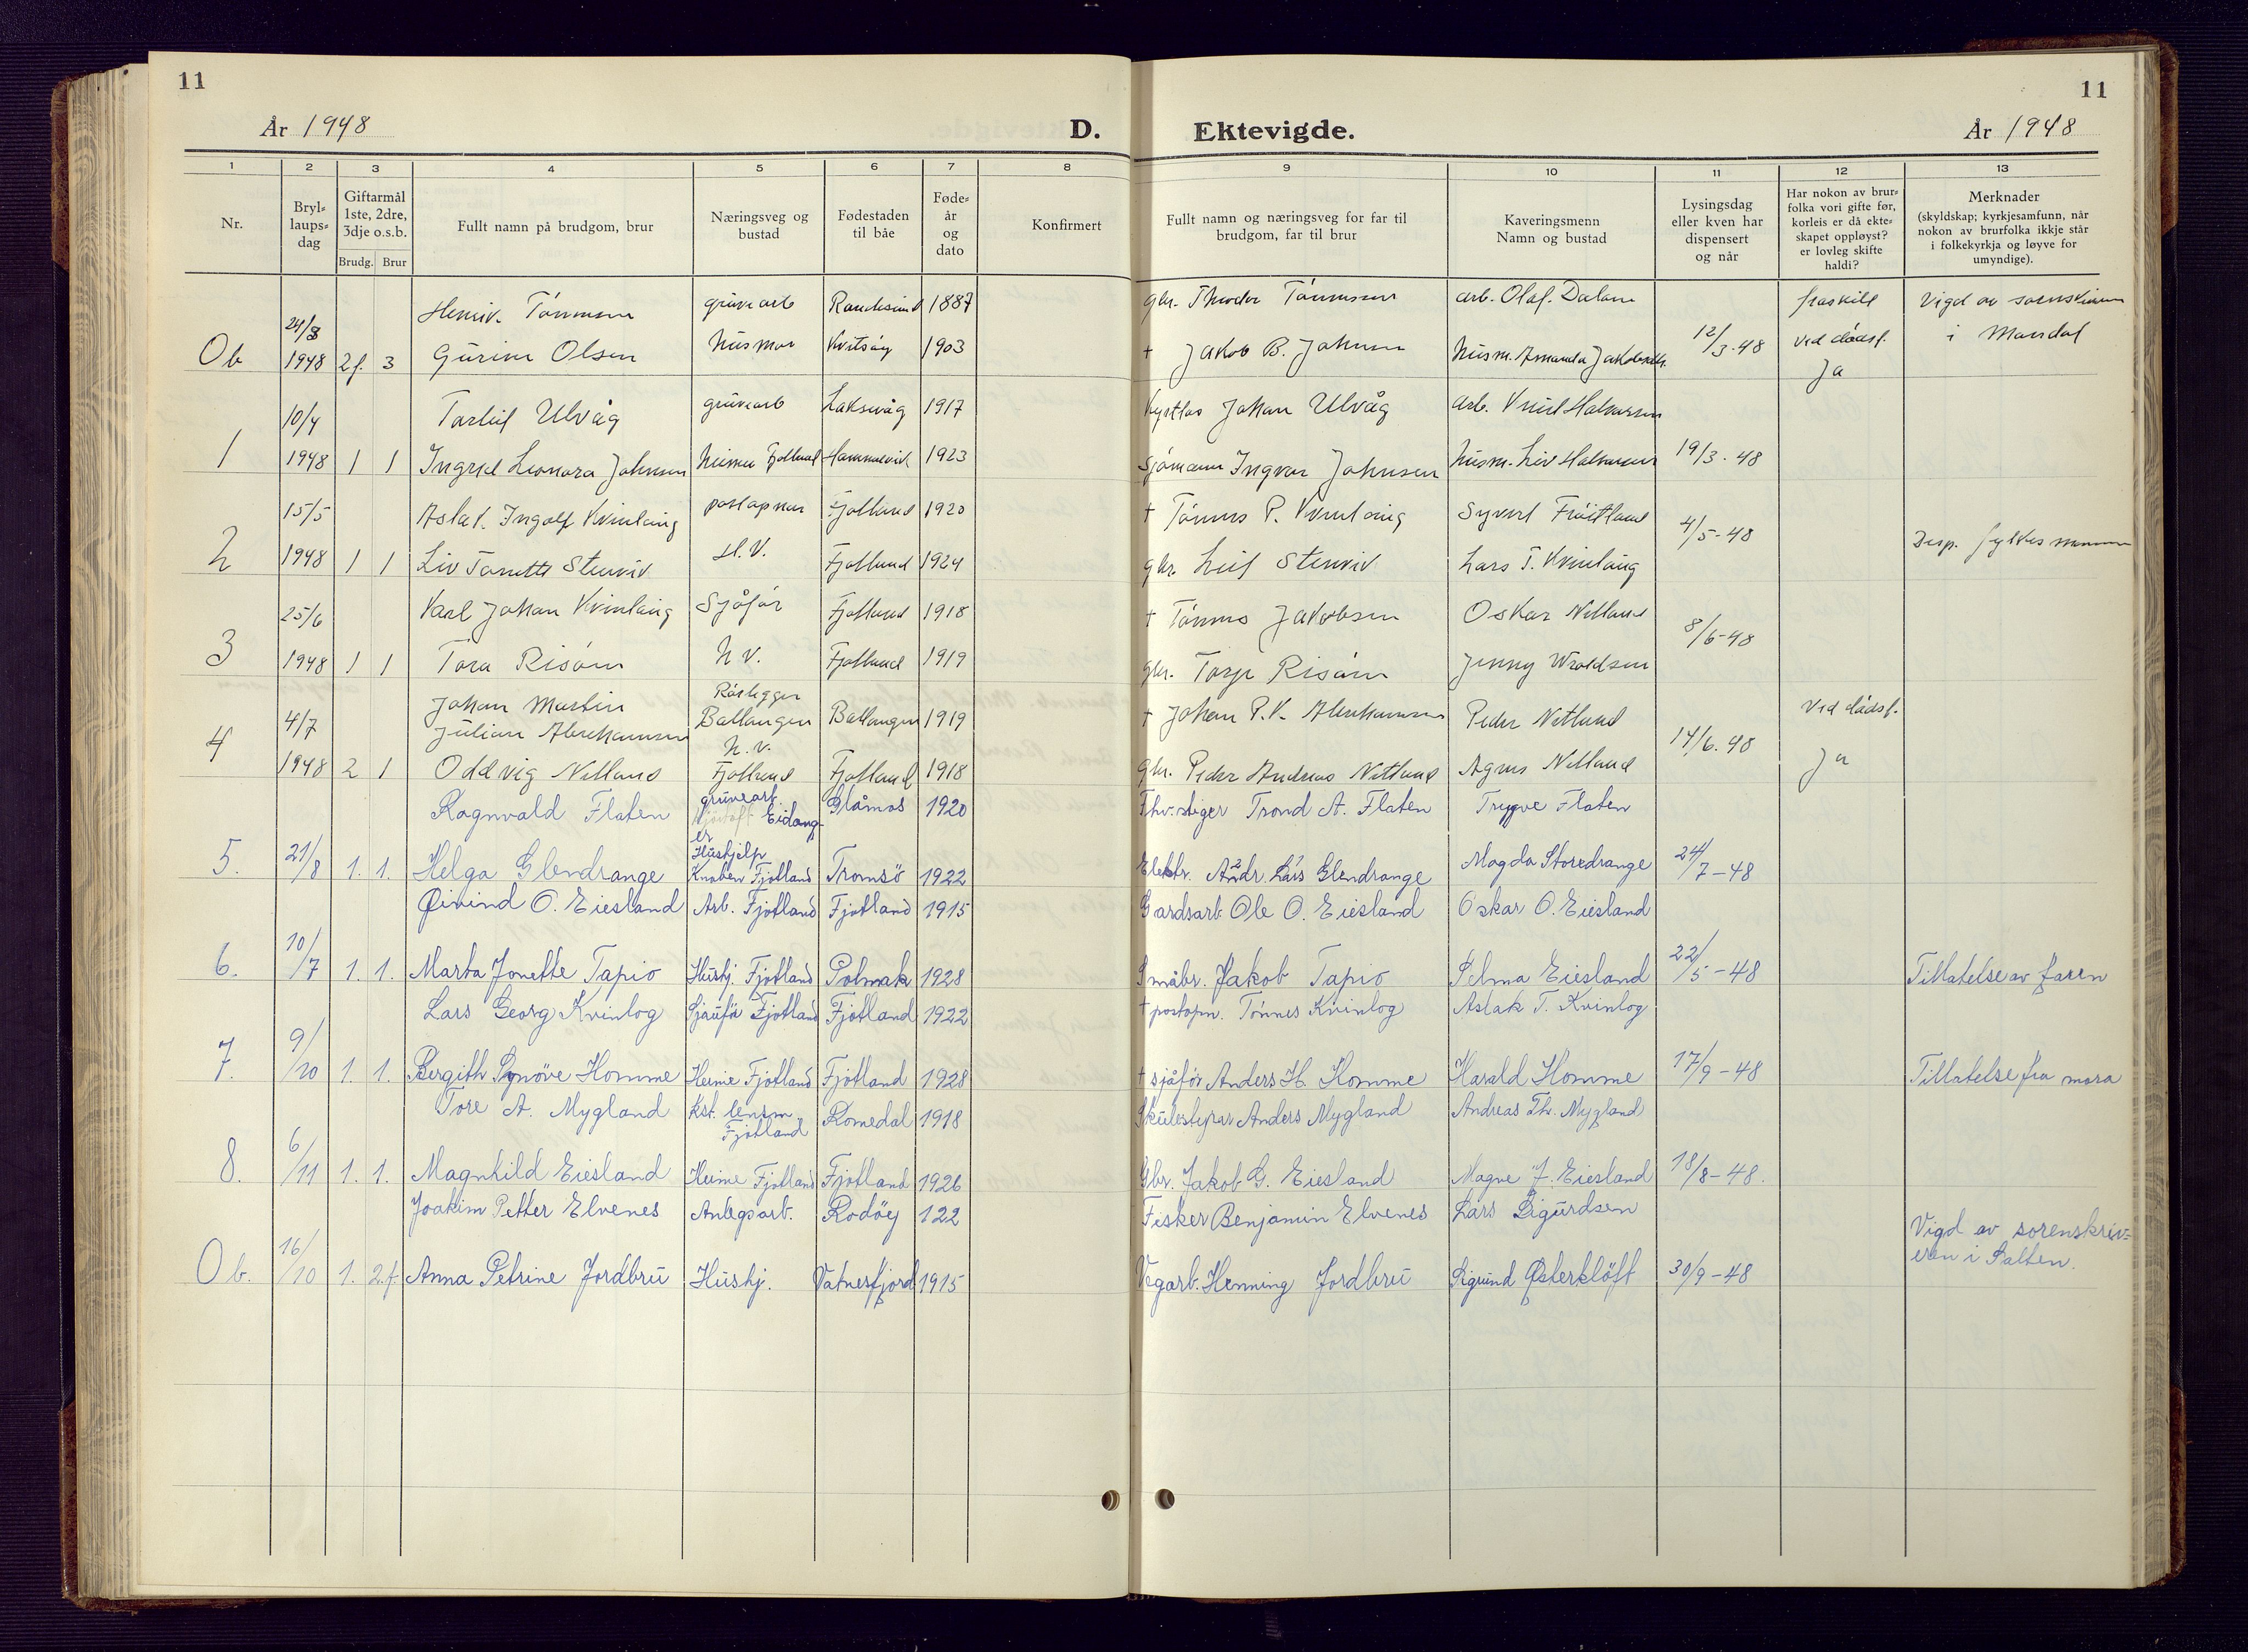 11
11
År 1948
D.
Ektevigde.
År 1948
1 2 3 4 5 6 7 8 9 10 11 12 13
Nr.
Bryl-
laups-
dag
Giftarmål
1ste, 2dre,
3dje o.s.b.
Brudg. Brur
Fullt namn på brudgom, brur
Næringsveg og
bustad
Fødestaden
til båe
Føde-
år
og
dato
Konfirmert
Fullt namn og næringsveg for far til
brudgom, far til brur
Kaveringsmenn
Namn og bustad
Lysingsdag
eller kven har
dispensert
og når
Har nokon av brur-
folka vori gifte før,
korleis er då ekte-
skapet oppløyst?
er lovleg skifte
haldi?
Merknader
(skyldskap; kyrkjesamfunn, når
nokon av brurfolka ikkje står
i folkekyrkja og løyve for
umyndige).
gruvearb 1887 gbr. arb. Olaf. Dalane fraskilt Vigd av
Ob 1948 2f. 3 Gurine Olsen husmor Kvitsøy 1903 † Jakob B. Johnsen husm. Amanda 12/3-48 ved dødsf. i Mandal
Ja
10/4 Torleif Ulvåg gruvearb Laksevåg 1917 Johan Ulvåg arb. Knut Halvorsen
1 1948 1 1 Ingrid Leonora Johnsen Fjotland 1923 Sjømann Ingvar Johnsen husm. Liv Halvorsen 19/3-48
15/5 Aslak Ingolf Kvinlaug postopnar Fjotland 1920 † Tønnes P. Kvinlaug Syvert Frøitland
2 1948 1 1 Liv Tonette Stenvik H.V. Fjotland 1924 gbr. Leif Stenvik Lars T. Kvinlaug 4/5-48 Disp. fylkesmannen
25/6 Karl Johan Kvinlaug Sjåfør Fjotland 1918 † Tønnes Jakobsen Oskar Netland
3 1948 1 1 Tora Risøin h v. Fjotland 1919 gbr. Terje Risøin Jenny Wroldsen 8/6-48
Johan Martin Rørlegger
4/7 Julian Abrahamsen Ballangen Ballangen 1919 † Johan P.K. Abrahamsen Peder Netland ved dødsf.
4 1948 2 1 Oddvig Netland h.v. Fjotland Fjotland 1918 gbr. Peder Andreas Netland Agnes Netland 14/6.48 Ja
Ragnvald Flaten gruvearb. Eidang-er Glåmos 1920 Fhv. stiger Trond A. Flaten Trygve Flaten
5. 21/8 1. 1. Helga Glendrange Hushjelp Knaben Fjotland Tromsö 1922 Elektr. Andr. Lars Glendrange Magda Storedrange 24/7-48
Øivind O. Eiesland Arb. Fjotland Fjotland 1915 Gardsarb Ole O. Eiesland Oskar O. Eiesland
6. 10/7 1. 1. Marta Jonette Tapio Hushj. Fjotland Polmak 1928 Småbr. Jakob Tapio Selma Eiesland 22/5-48 Tillatelse av faren
Lars Georg Kvinlog Sjauför Fjotland Fjotland 1922 † postopn. Tönnes Kvinlog Aslak T. Kvinlog
7. 9/10 1. 1. Bergith Synöve Homme Heime Fjotland Fjotland 1928 † sjåför Anders H. Homme Harald Homme 17/9-48 Tillatelse fra mora
Tore A. Mygland Kst. lensm. Fjotland Romedal 1918 Skulestyrar Anders Mygland Andreas Th. Mygland
8. 6/11 1. 1. Magnhild Eiesland Heime Fjotland Fjotland 1926 Gbr. Jakob G. Eiesland Magne J. Eiesland 18/8-48.
Joakim Petter Elvenes Anlegsarb. Rodöy 122 Fisker Benjamin Elvenes Lars Sigurdsen Vigd av sorenskriv-
Ob. 16/10 1. 2.f. Anna Petrine Jordbru Hushj. Vatnesfjord 1915 Vegarb. Henning Jordbru Sigrund Østerklöft 30/9-48 eren i Salten.